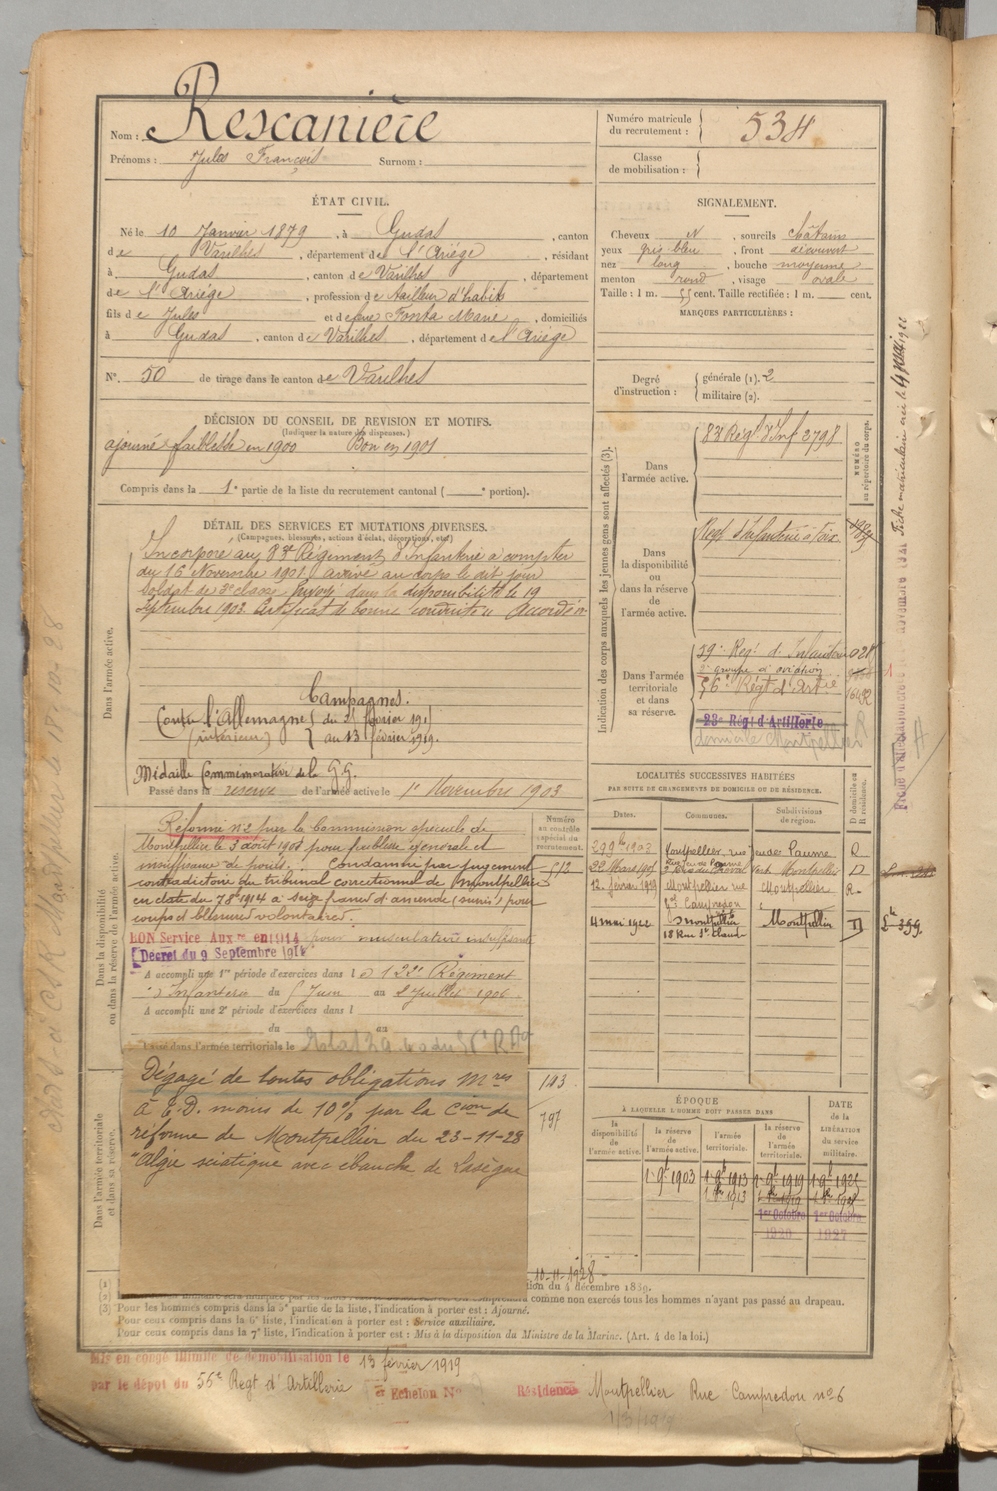 Nom : Rescanière
Prénoms : Jules François Surnom :
Numéro matricule du recrutement : 534
Classe de mobilisation :
ÉTAT CIVIL.
Né le 10 Janvier 1879, à Gudas, canton
de Varilhes, département de l'Ariège, résidant
à Gudas, canton de Varilhes, département
de l'Ariège, profession de tailleur d'habits
fils de Jules et de feue Fonta Marie, domiciliés
à Gudas, canton de Varilhes, département de l'Ariège
N° 50 de tirage dans le canton de Varilhes
SIGNALEMENT.
Cheveux N, sourcils châtains
yeux gris bleu, front découvert
nez long, bouche moyenne
menton rond, visage ovale
Taille : 1 m. 55 cent. Taille rectifiée : 1 m. cent.
MARQUES PARTICULIÈRES :
Degré d'instruction : générale (1). 2
militaire (2).
DÉCISION DU CONSEIL DE REVISION ET MOTIFS.
(Indiquer la nature des dispenses.)
ajourné faiblesse en 1900 Bon en 1901
Compris dans la 1e partie de la liste du recrutement cantonal ( e portion).
DÉTAIL DES SERVICES ET MUTATIONS DIVERSES.
(Campagnes, blessures, actions d'éclat, décorations, etc.)
Dans l'armée active.
Incorporé au 83e Régiment d'Infanterie à compter
du 16 Novembre 1901 arrivé au corps le dit jour
soldat de 2e classe Envoyé dans la disponibilité le 19
Septembre 1903. Certificat de bonne conduite "Accordé"
Campagnes.
Contre l'Allemagne du février 191
(intérieur) au 13 février 1919.
Médaille Commémorative de la G.G.
Passé dans la réserve de l'armée active le 1er Novembre 1903
Indication des corps auxquels les jeunes gens sont affectés (3).
NUMÉRO au répertoire du corps.
Dans l'armée active.
83e Régt d'Inf 2798
Dans la disponibilité ou dans la réserve de l'armée active.
Régt d'Infanterie à Foix
Dans l'armée territoriale et dans sa réserve.
Reg. d'Infanterie
2e groupe d'aviation
56e Régt d'Artie
23e Régt d'Artillerie
domicile Montpellier
Dans la disponibilité ou dans la réserve de l'armée active.
Numéro au contrôle spécial du recrutement.
Réformé n° 2 par la Commission spéciale de
Montpellier le 3 août 1908 pour faiblesse générale et
insuffisance de poids. Condamné par jugement 512
contradictoire du tribunal correctionnel de Montpellier
en date du 7 8bre 1914 à seize francs d'amende (sursis) pour
coups et blessures volontaires.
BON Service Auxre en 1914 pour musculature insuffisante
Décret du 9 Septembre 1914
A accompli une 1re période d'exercices dans le 122e Régiment
d'Infanterie du 5 Juin au 2 Juillet 1906.
A accompli une 2e période d'exercices dans l
du au
Passé dans l'armée territoriale le
Dans l'armée territoriale et dans sa réserve.
Dégagé de toutes obligations Mres
à E.D. moins de 10% par la Cion de
réforme de Montpellier du 23-11-28
"Algie sciatique avec ébauche de Lasègue
143
797
10-11-1928
LOCALITÉS SUCCESSIVES HABITÉES
PAR SUITE DE CHANGEMENTS DE DOMICILE OU DE RÉSIDENCE.
Dates. Communes. Subdivisions de région. D domicile ou R résidence.
29 9bre 1903 Montpellier, rue Jeu de Paume R
22 Mars 1905 Montpellier D
12 février 1919 Montpellier rue Montpellier R
Campredon
4 mai 1922 Montpellier Montpellier D
18 Rue St Claude
ÉPOQUE
À LAQUELLE L'HOMME DOIT PASSER DANS
la disponibilité de l'armée active.
la réserve de l'armée active.
l'armée territoriale.
la réserve de l'armée territoriale.
DATE de la LIBÉRATION du service militaire.
1 9b 1903 1 9b 1913 1 9b 1919 1 9b 1925
1er Octobre 1er Octobre
1920 1927
(1)
(2) comme non exercés tous les hommes n'ayant pas passé au drapeau.
(3) Pour les hommes compris dans la 5e partie de la liste, l'indication à porter est : Ajourné.
Pour ceux compris dans la 6e liste, l'indication à porter est : Service auxiliaire.
Pour ceux compris dans la 7e liste, l'indication à porter est : Mis à la disposition du Ministre de la Marine. (Art. 4 de la loi.)
Mis en congé illimité de démobilisation le 13 février 1919
par le dépôt du 56e Regt d'Artillerie Echelon N° Résidence Montpellier Rue Campredon no 6